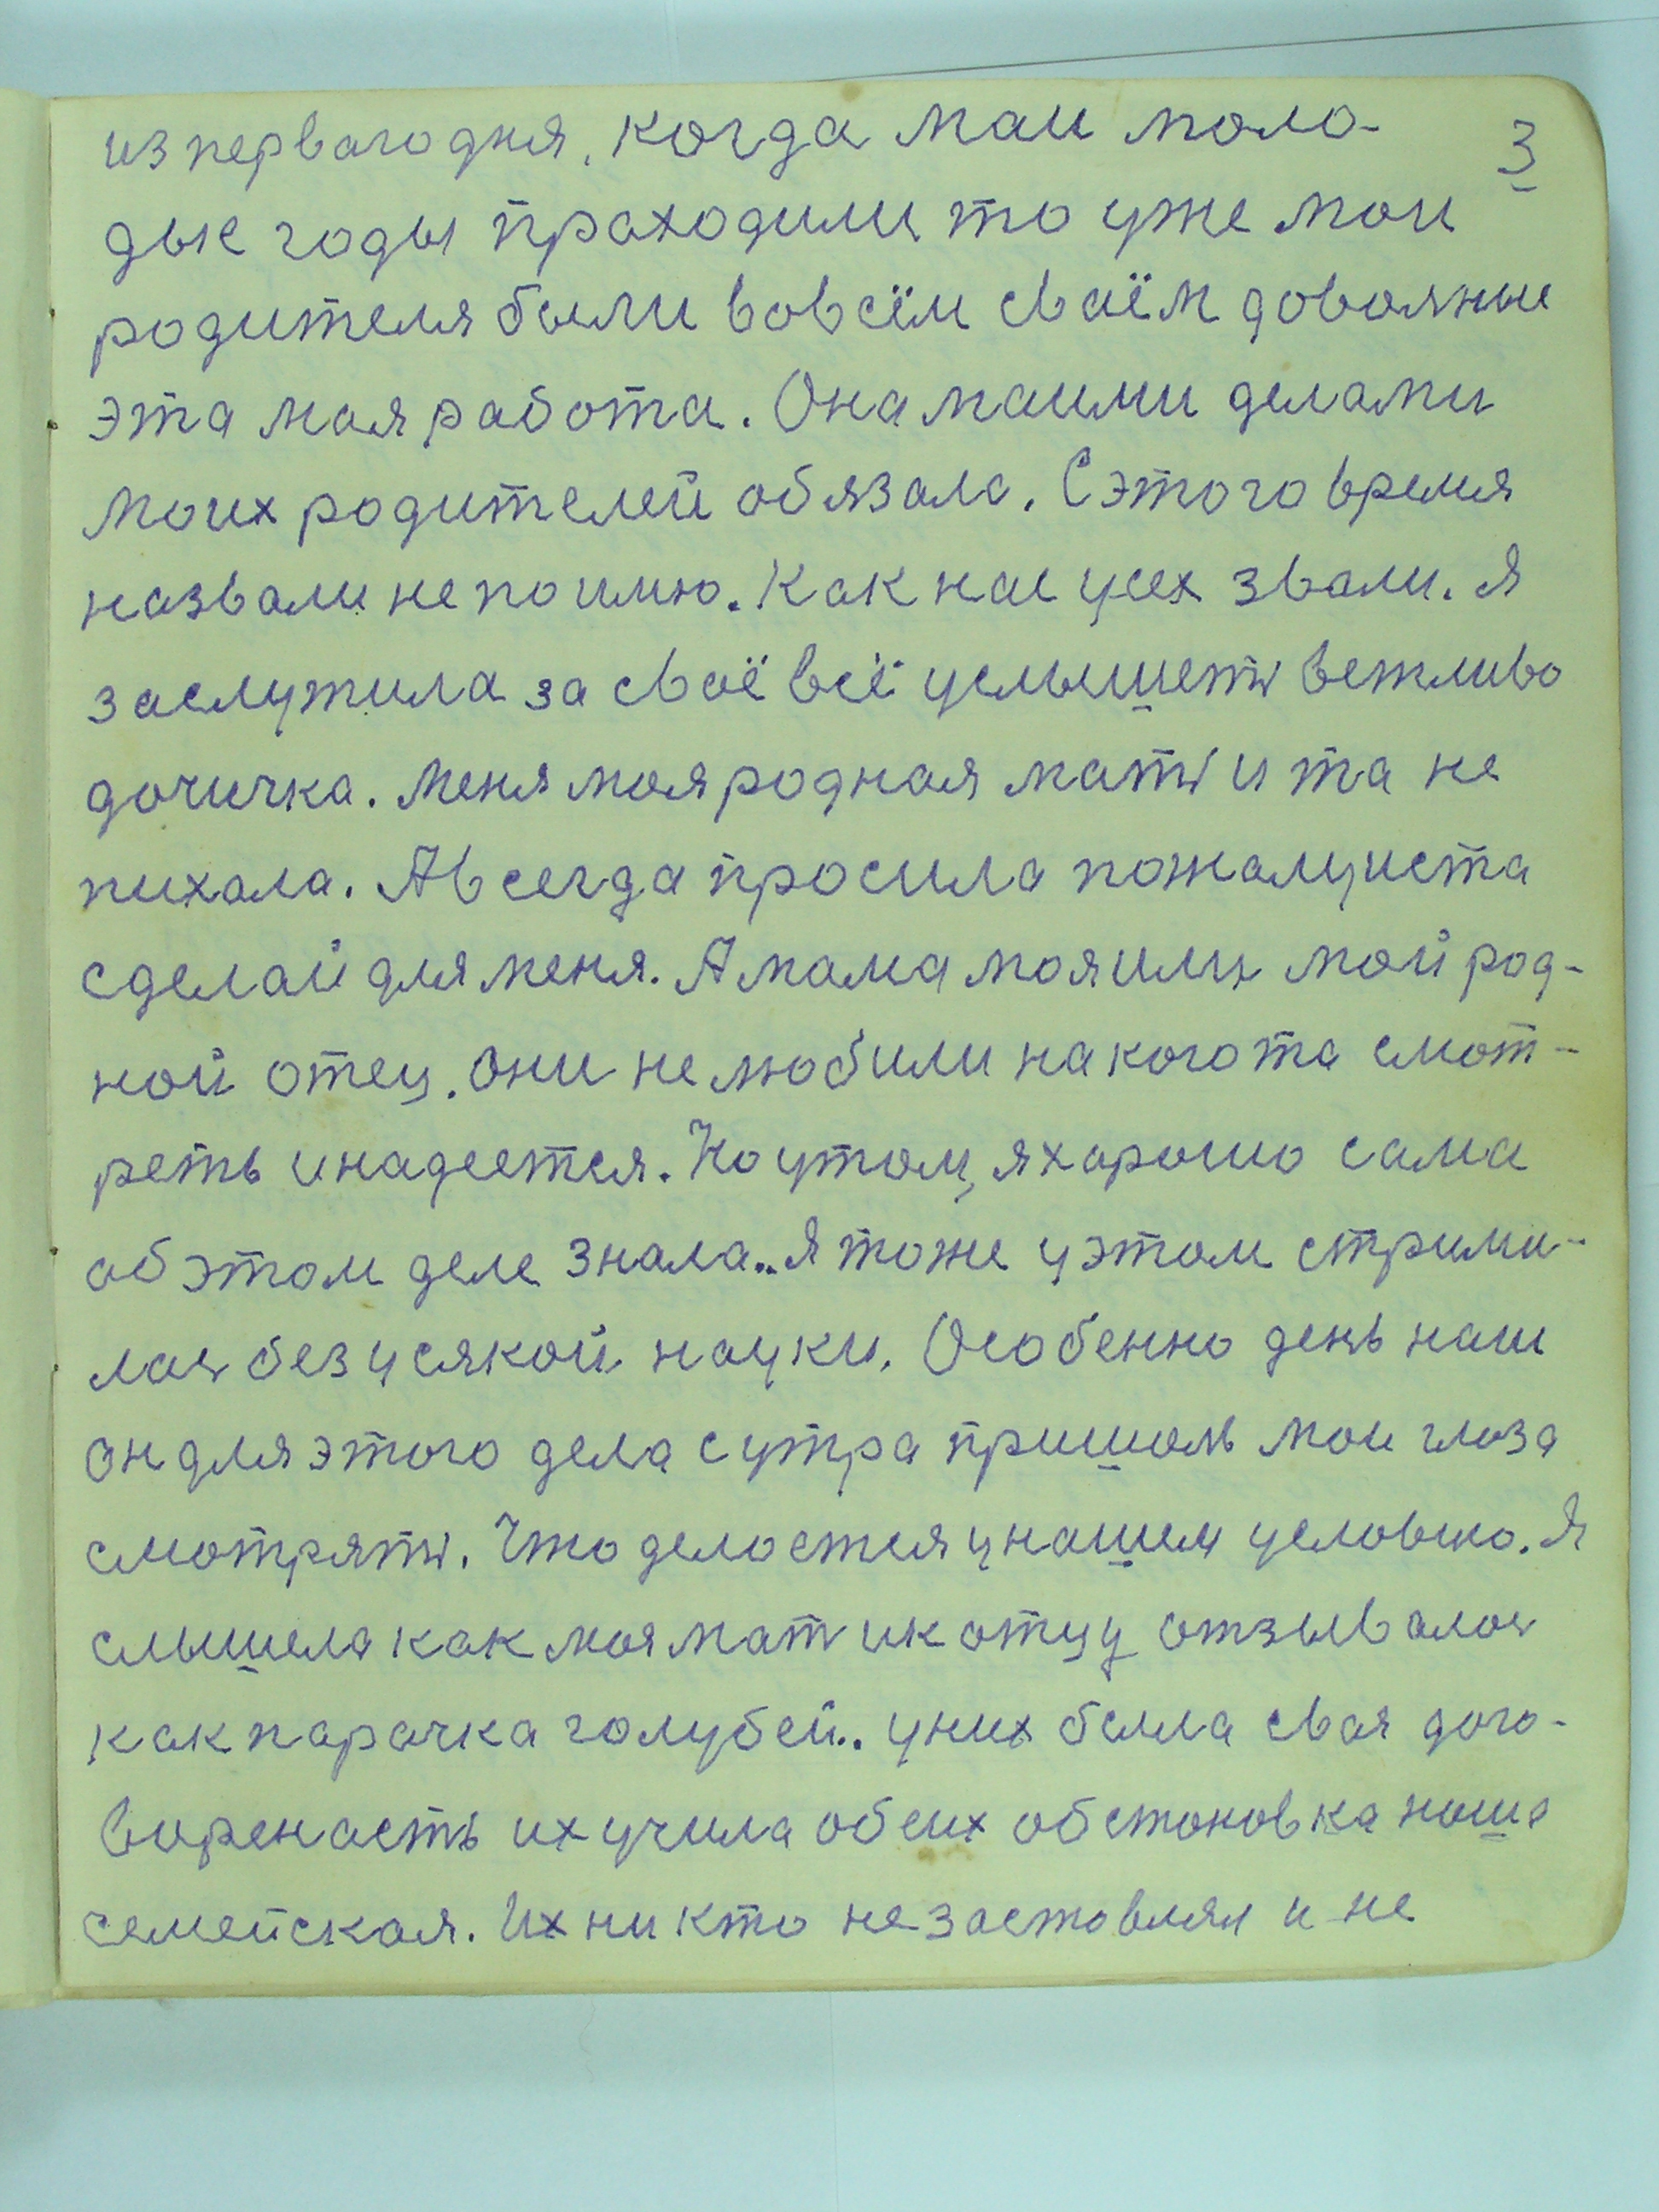 из первагодня, когда маи моло-
3
дые годы праходили, то уже мои
родителя были вовсём сваём доволяные
эта мая работа. Она маими делами
моих родителей обязала. С этого время
назвали не по имю. Как нас усех звали. Я
заслужила за сваё всё услышеть ветливо
дочичка. Меня моя родная мать и та не
пихала. А всегда просила пожалуиста
сделай для меня. А мама моя или мой род-
ной отец. они не любили на когота смот-
реть и надеется. Но утом, я харошо сама
об этом деле знала.. Я тоже у этом стрими-
лась без усякой науки. Особенно день наш
он для этого дела с утра пришоль мои глаза
смотрять. Что делается у нашем условию. Я
слышела как моя мать и к отцу отзывалась
как парачка голубей.. у них была свая дого-
вореность их учила обеих обстоновка наша
семейская. Их ни кто не заставлял и не